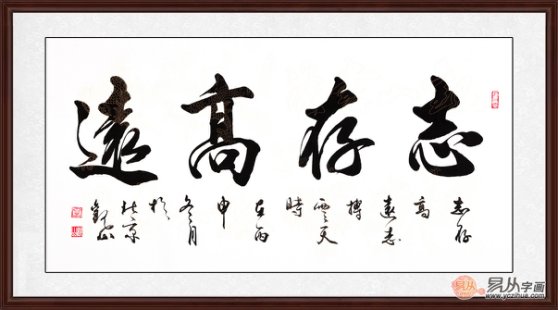 志存高遠
志存
高
遠志
搏
雲天
時
在丙
申
冬月
於
北京
易从字画
www.yczihua.com